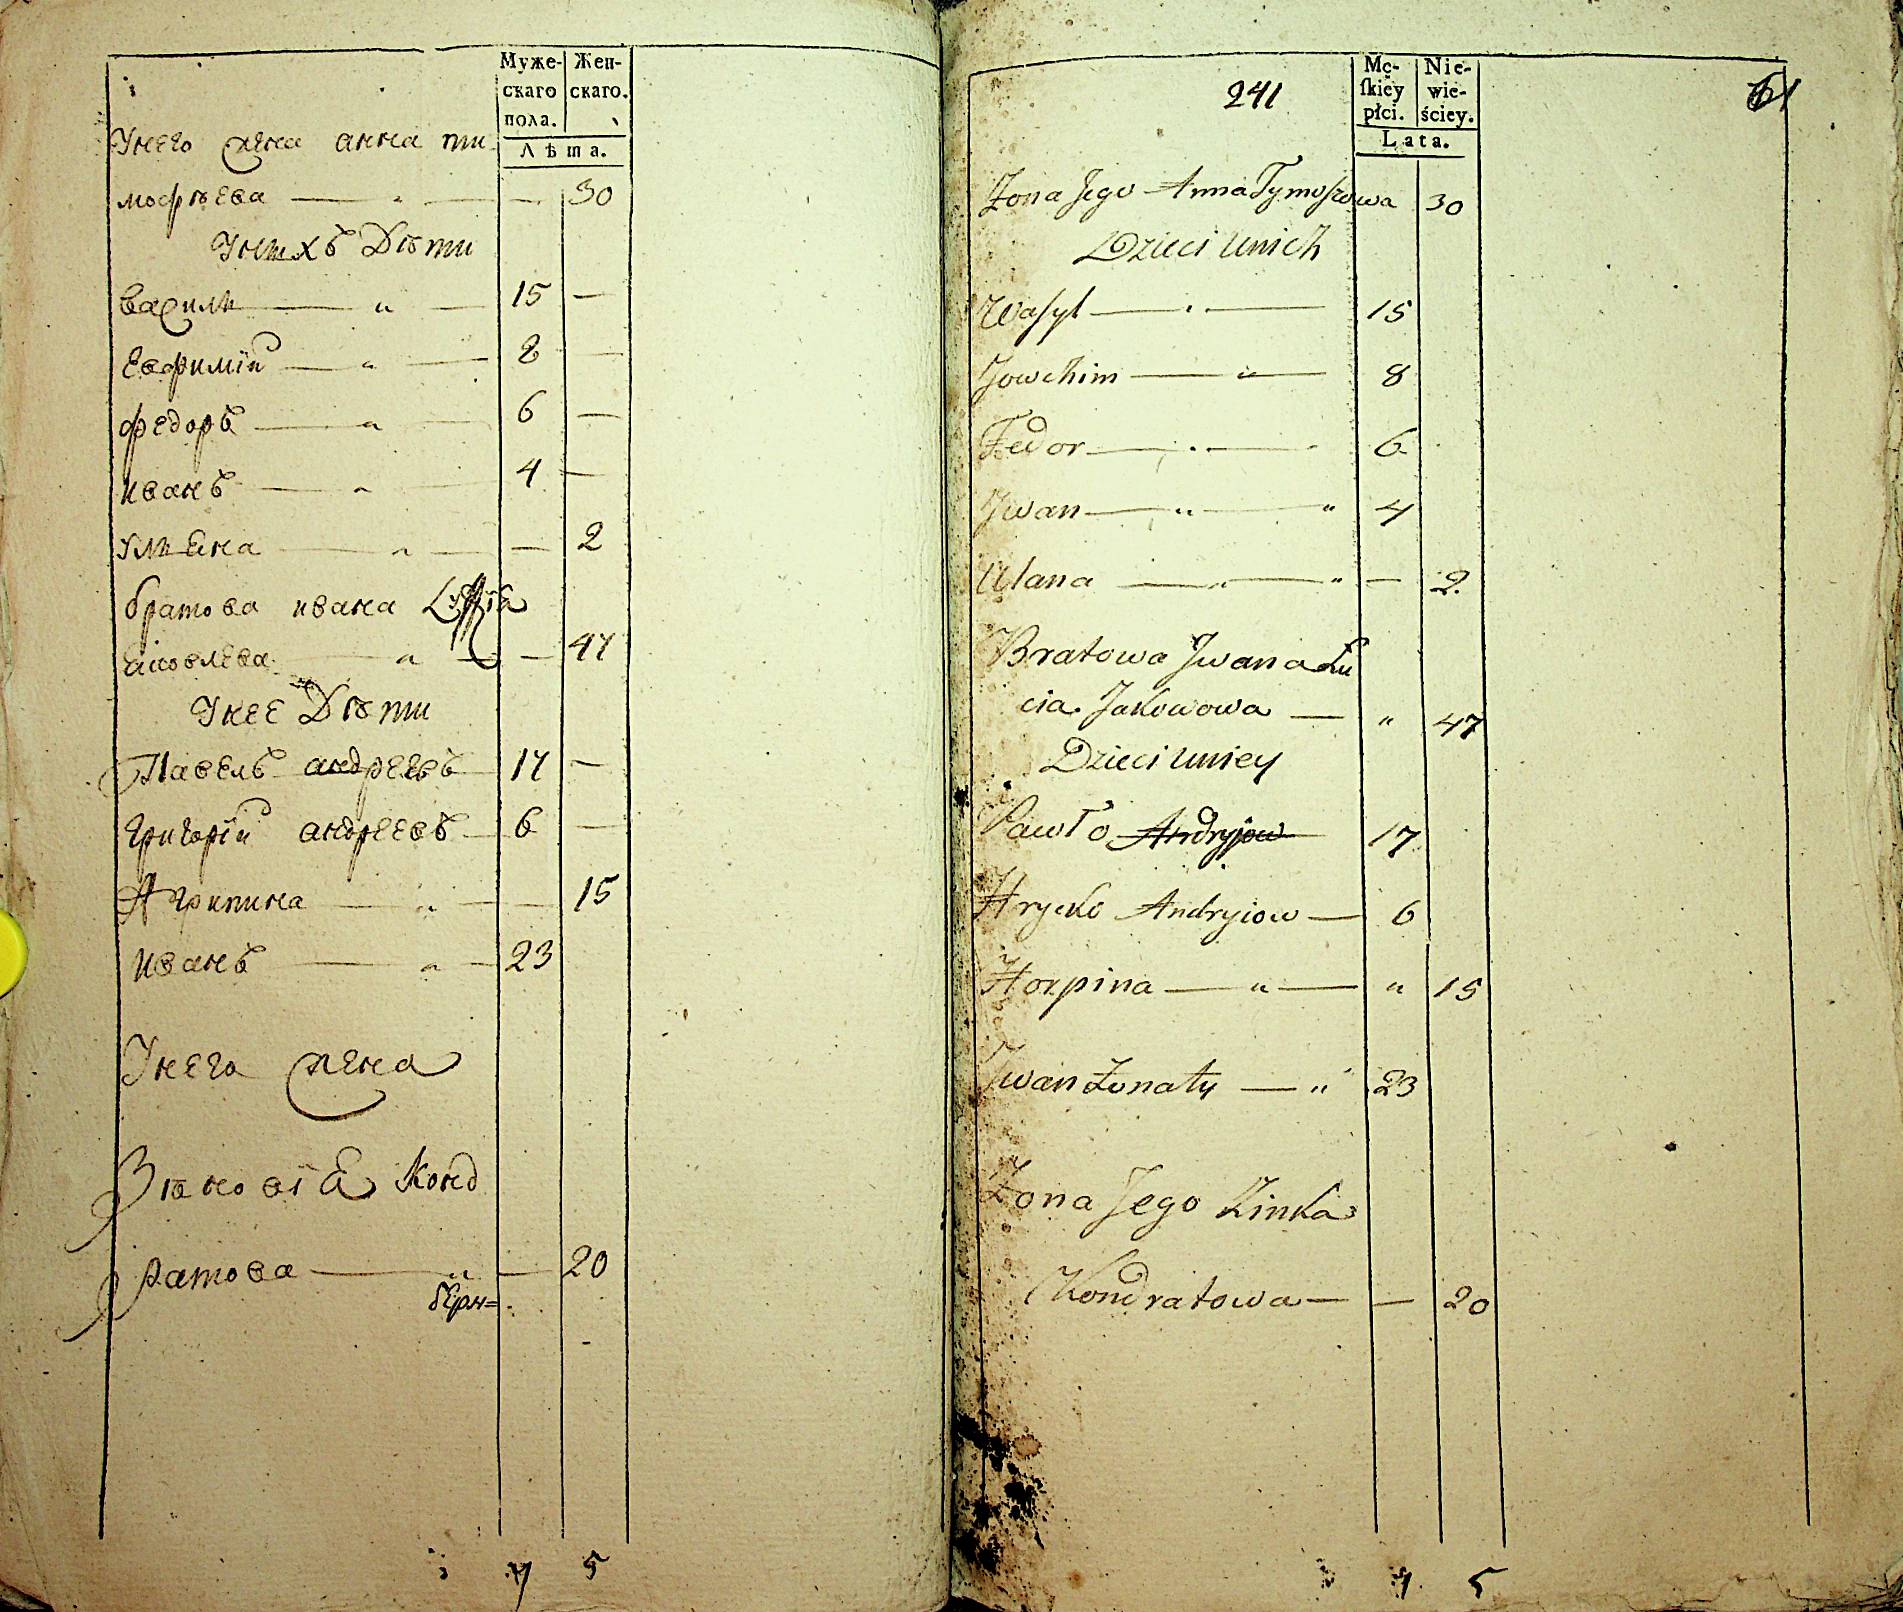 Муже- Жен-
скаго скаго.
пола.
Лѣта.
Унего жена анна ти
мофѣева — „ — — 30
Унихъ Дѣти
василй — „ — 15 —
Евфимїй — „ — 8 —
федоръ — „ — 6 —
иванъ — „ — 4 —
улиꙗна — „ — — 2
братова ивана
ꙗковлева — „ — — 47
Унее Дѣти
Павелъ андреевъ 17 —
григорїй андреевъ — 6 —
Агрипина — „ — — 15
иванъ — „ — 23
Унего жена
Зѣновїꙗ Конд
ратова — „ — 20
7 5
241 61
Mę- Nie-
ſkiey wie-
płci. ściey.
Lata.
Żona Jego Anna Tymoszowa 30
Dzieci unich
Wasyl — „ — 15
Jowchim — „ — 8
Fedor — „ — 6
Jwan — „ — „ 4
Ulana — „ — „ — 2
Bratowa Jwana Łu
cia Jakowowa — „ 47
Dzieci uniey
Pawło Andryjow 17
Hrycko Andryiow — 6
Horpina — „ — „ 15
Jwan Żonaty — „ 23
Żona Jego Zinka
Kondratowa — — 20
7 5